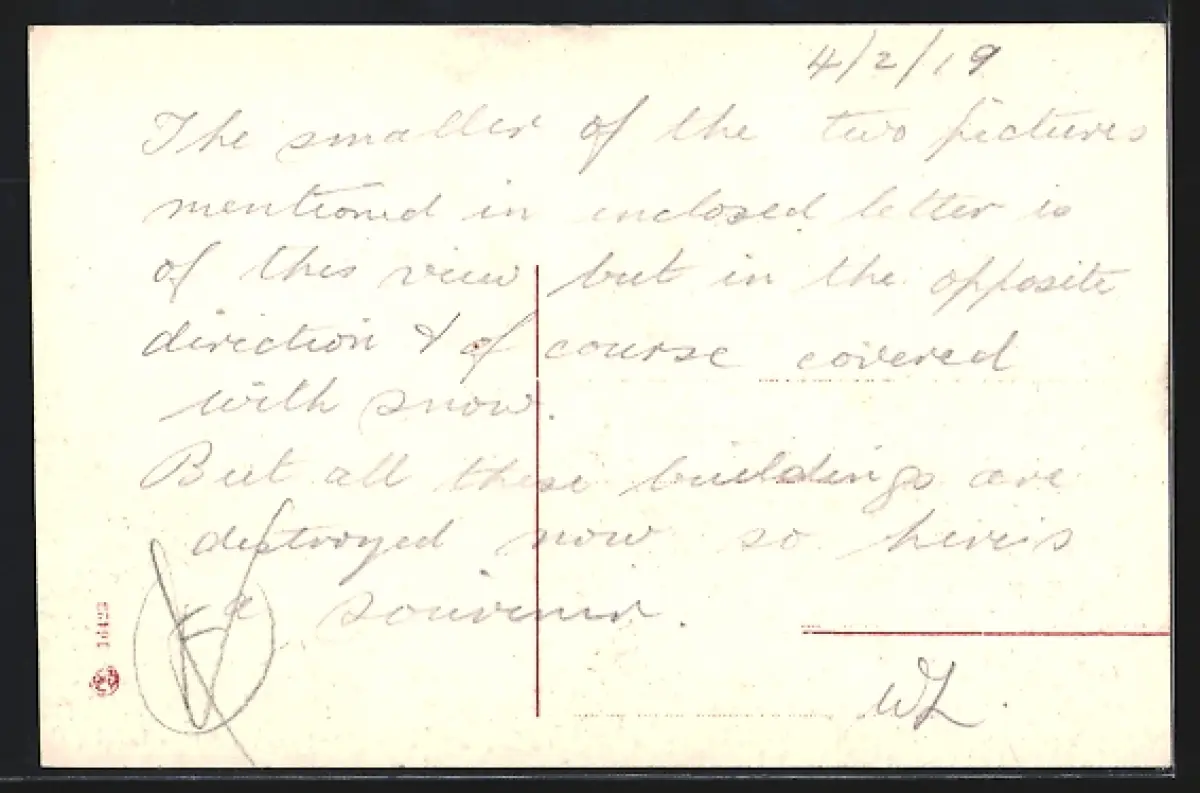 4/2/19
The smaller of the two pictures
mentioned in enclosed letter is
of this view but in the opposite
direction & of course covered
with snow.
But all these buildings are
destroyed now so here's
a souvenir.
WL.